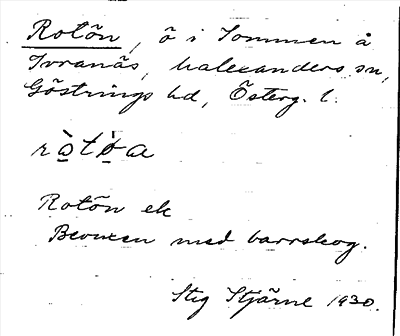 Rotön, ö i Sommen å
Tvranäs, Malexanders sn,
Göstrings hd, Österg. l.
Rotön ek
Bevuxen med barrskog.
Stig Stjärne 1930.